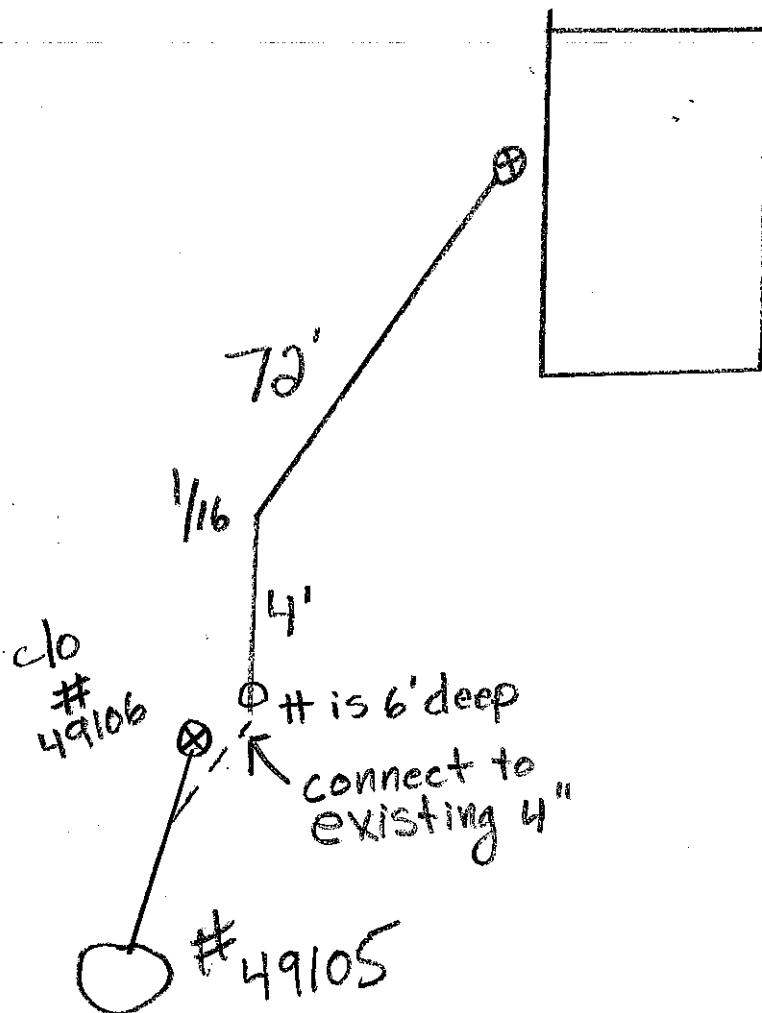 72'
1/16
4'
c/o
#
49106
# is 6' deep
connect to
existing 4"
# 49105